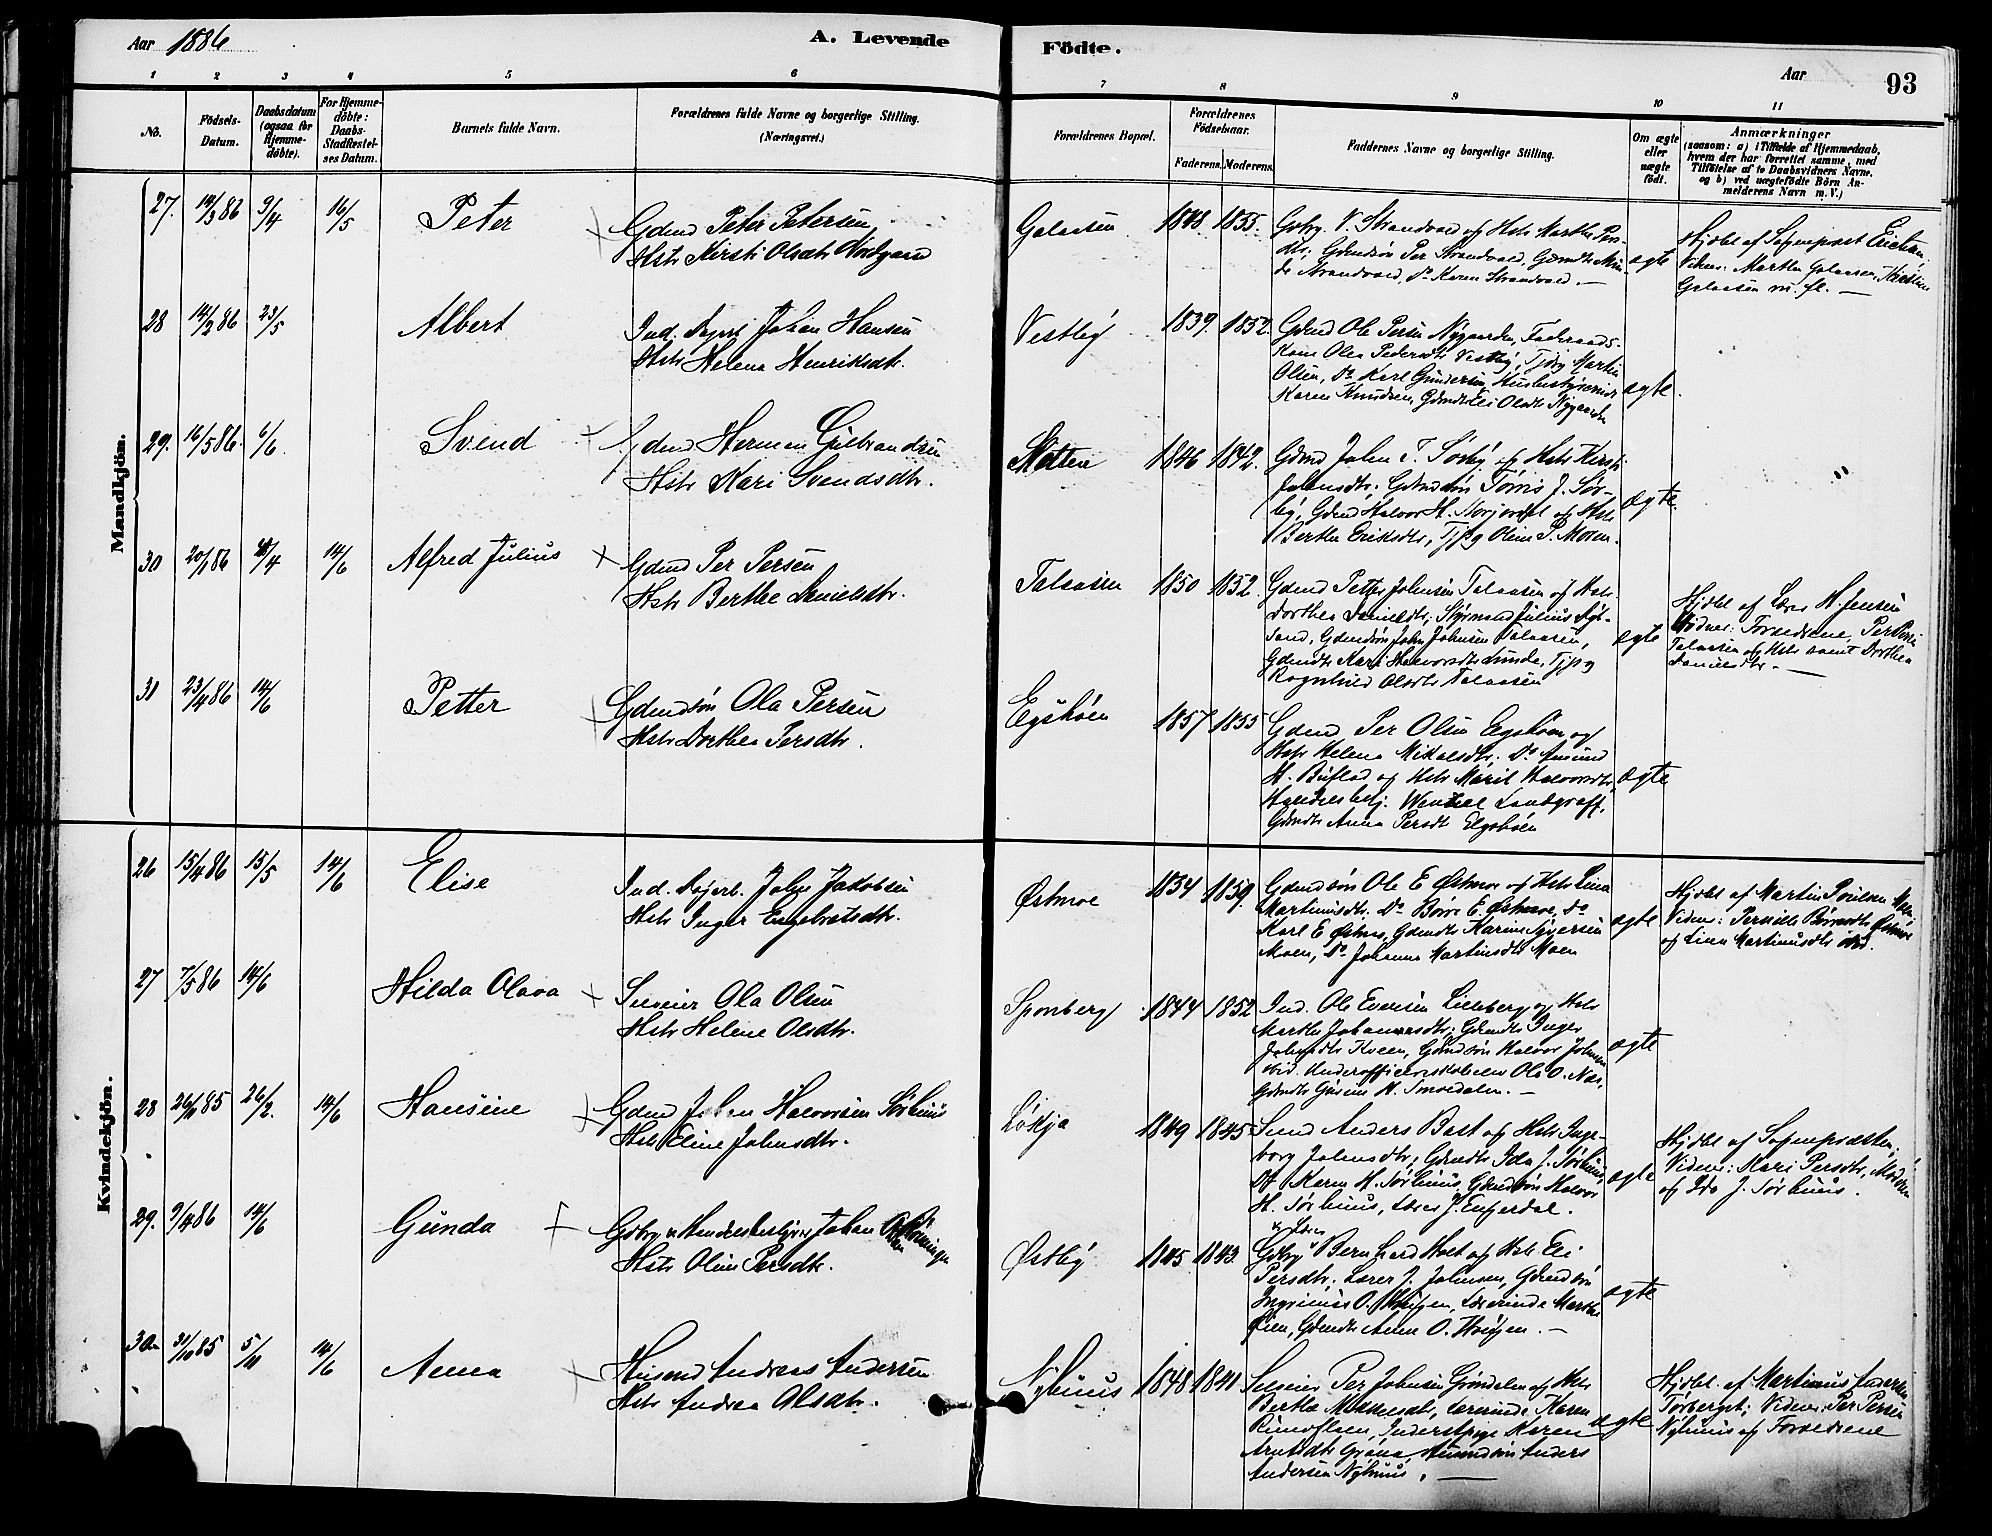 Aar 1886
A. Levende
Födte.
Aar
93
1 2 3 4 5 6 7 8 9 10 11
No.
Födsels-
Datum.
Daabsdatum
(ogsaa for
Hjemme-
döbte).
For Hjemme-
döbte:
Daabs-
Stadfæstel-
ses Datum.
Barnets fulde Navn.
Forældrenes fulde Navne og borgerlige Stilling.
(Næringsvei.)
Forældrenes Bopæl.
Forældrenes
Födselsaar.
Faderens. Moderens.
Faddernes Navne og borgerlige Stilling.
Om ægte
eller
uægte
födt.
Anmærkninger
(saasom: a) i Tilfælde af Hjemmedaab,
hvem der har forrettet samme, med
Tilföielse af to Daabsvidners Navne,
og b) ved uægtefödte Börn An-
melderens Navn m. V.)
Mandkjön.
27. 14/3 86 9/4 16/5 Peter
Gdmd Peter Petersen
Hstr Kirsti Olsdtr Nordgaard
Galaasen 1848. 1855.
Gbrg. V. Strandvold og Hstr Marthe Pers-
dtr, Gdmdsøn Per Strandvold, Gdmdtr
Strandvold, Do Karen Strandvold. —
ægte
Hjdbt af Sognepræst Erichsen,
Vidner: Marthe Galaasen, Kirstine
Galaasen m. fl. —
28 14/2 86 23/5 Albert
Ind. Johan Hansen
Hstr Helena Henriksdtr.
Vestby 1839. 1852.
Gdmd Ole Persen Nygaarden, Føderaads-
kone Olea Pedersdtr Vestby, Tjdrg Martin
Olsen, Do Karl Gundersen, Husbestyrerinde
Karen Knudsen, Gdmdtr Eli Olsdtr Nygaarden
ægte.
29. 16/5 86. 6/6 Svend
Gdmd Herman Gulbrandsen
Hstr Kari Svendsdtr.
Sletten 1846 1842.
Gdmd Johan T. Sørby og Hstr Kirsti
Johansdtr, Gdmdsøn Tørris J. Sør-
by, Gdmd Halvor H. Norjordet og Hstr
Berthe Eriksdtr, Tjpg Oline P. Moren.
ægte.
30 20/1 86 4/4 14/6 Alfred Julius
Gdmd Per Persen
Hstr Berthe Danielsdtr.
Talaasen 1850 1852.
Gdmd Petter Johnsen Talaasen og Hstr
Dorthea Danielsdtr, Styrmand Julius
Gdmdsøn John Johnsen Talaasen,
Gdmdtr Kari Halvorsdtr Lunde, Tjpg
Ragnhild Olsdtr Talaasen
ægte
Hjdbt af Lærer H. Jensen
Vidner: Forældrene, Per Persen
Talaasen og Hstr samt Dorthea
Danielsdtr. —
31 23/4 86 14/6 Petter
Gdmdsøn Ola Persen
Hstr Dorthea Persdtr.
Egshøen 1857 1855
Gdmd Per Olsen Egshøen og
Hstr Helena Mikalsdtr. Do Amund
H. Buflod og Hstr Marit Halvorsdtr,
Handelsbetj. Wenzel Landgraff,
Gdmdtr Anna Persdtr Elgshøen
ægte
Kvindekjön.
26 15/4 86 15/5 14/6 Elise
Ind. Johs Jakobsen
Hstr Inger Engebretsdtr.
Østmoe 1834 1859.
Gdmdsøn Ole E Østmoe og Hstr Lina
Martinusdtr. Do Børre E. Østmoe, Do
Karl E Østmoe, Gdmdtr Karine
Moen, Do Johanne Martinusdtr Moen
ægte
Hjdbt af Martin Poulsen Moen
Vidner: Pernille Børresdtr Østmoe
og Lina Martinusdtr ibid.
27 7/5 86 14/6 Hilda Olava
Selveier Ola Olsen
Hstr Helene Olsdtr.
Sponberg 1844 1852
Ind. Ole Evensen Lilleberg og Hstr
Marthe Johannesdtr; Gdmdtr Inger
Johnsdtr Kveen, Gdmdsøn Halvor Johnsen
ibid. Underofficerskoleelev Ole O. Næs,
Gdmdtr Gusine H. Smoedalen. —
ægte
28 26/11 85 26/2. 14/6 Hansine
Gdmd Johan Halvorsen Sørhuus
Hstr Eline Johnsdtr.
Løkja 1849 1845
Smed Anders Bast og Hstr Inge-
borg Johnsdtr, Gdmdtr Ida J. Sørhuus,
Do Karen H. Sørhuus, Gdmdsøn Halvor
H. Sørhuus, Lærer J. Engerdal.
ægte
Hjdbt af Sognepræsten,
Vidner: Kari Persdtr,
og Ida J. Sørhuus.
29. 9/4 86 14/6 Gunda
Gdbrg & Handelsbestyrer Johan
Hstr Oline Persdtr.
Østby 1845 1843.
& Lærer
Gdbrg Bernhard Holt og Hstr Eli
Persdtr, Lærer J. Johnsen, Gdmdsøn
Ingvinius O. Lærerinde Marthe
Øien, Gdmdtr Anne O. —
ægte
30. 31/10 85 5/11 14/6 Anna
Husmd Andreas Andersen
Hstr Andrea Olsdtr.
Nyhuus 1848 1841
Selveier Per Johnsen Grøndalen og Hstr
Berthe Mikkelsdtr, Lærerinde Karen
Inderstpige Karen
Arntsdtr Husmdsøn Anders
Andersen Nyhuus. —
ægte
Hjdbt. af Martinus Andersen
Tørberget; Vidner: Per Persen
Nyhuus og Forældrene